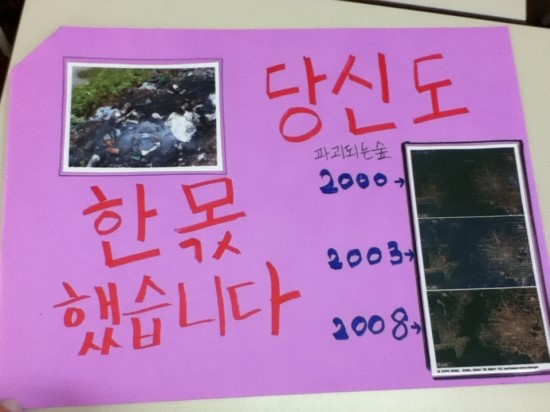 당신도
파괴되는숲
2000→
2003→
2008→
한 몫
했습니다